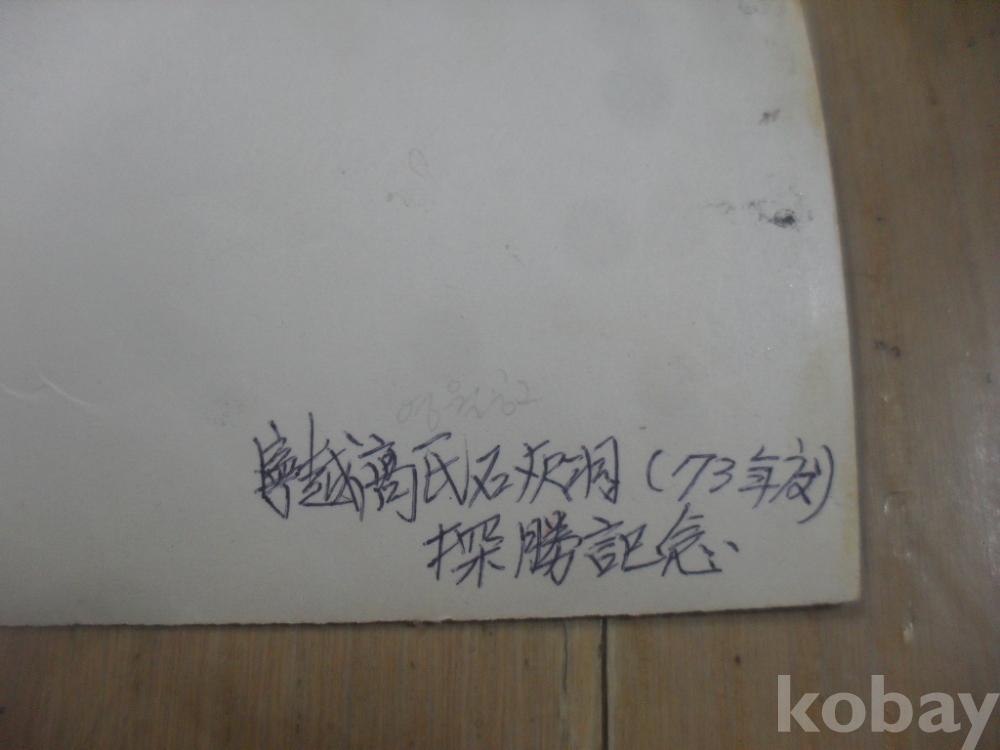 寧越高氏石灰洞 (73年度)
探勝記念
kobay